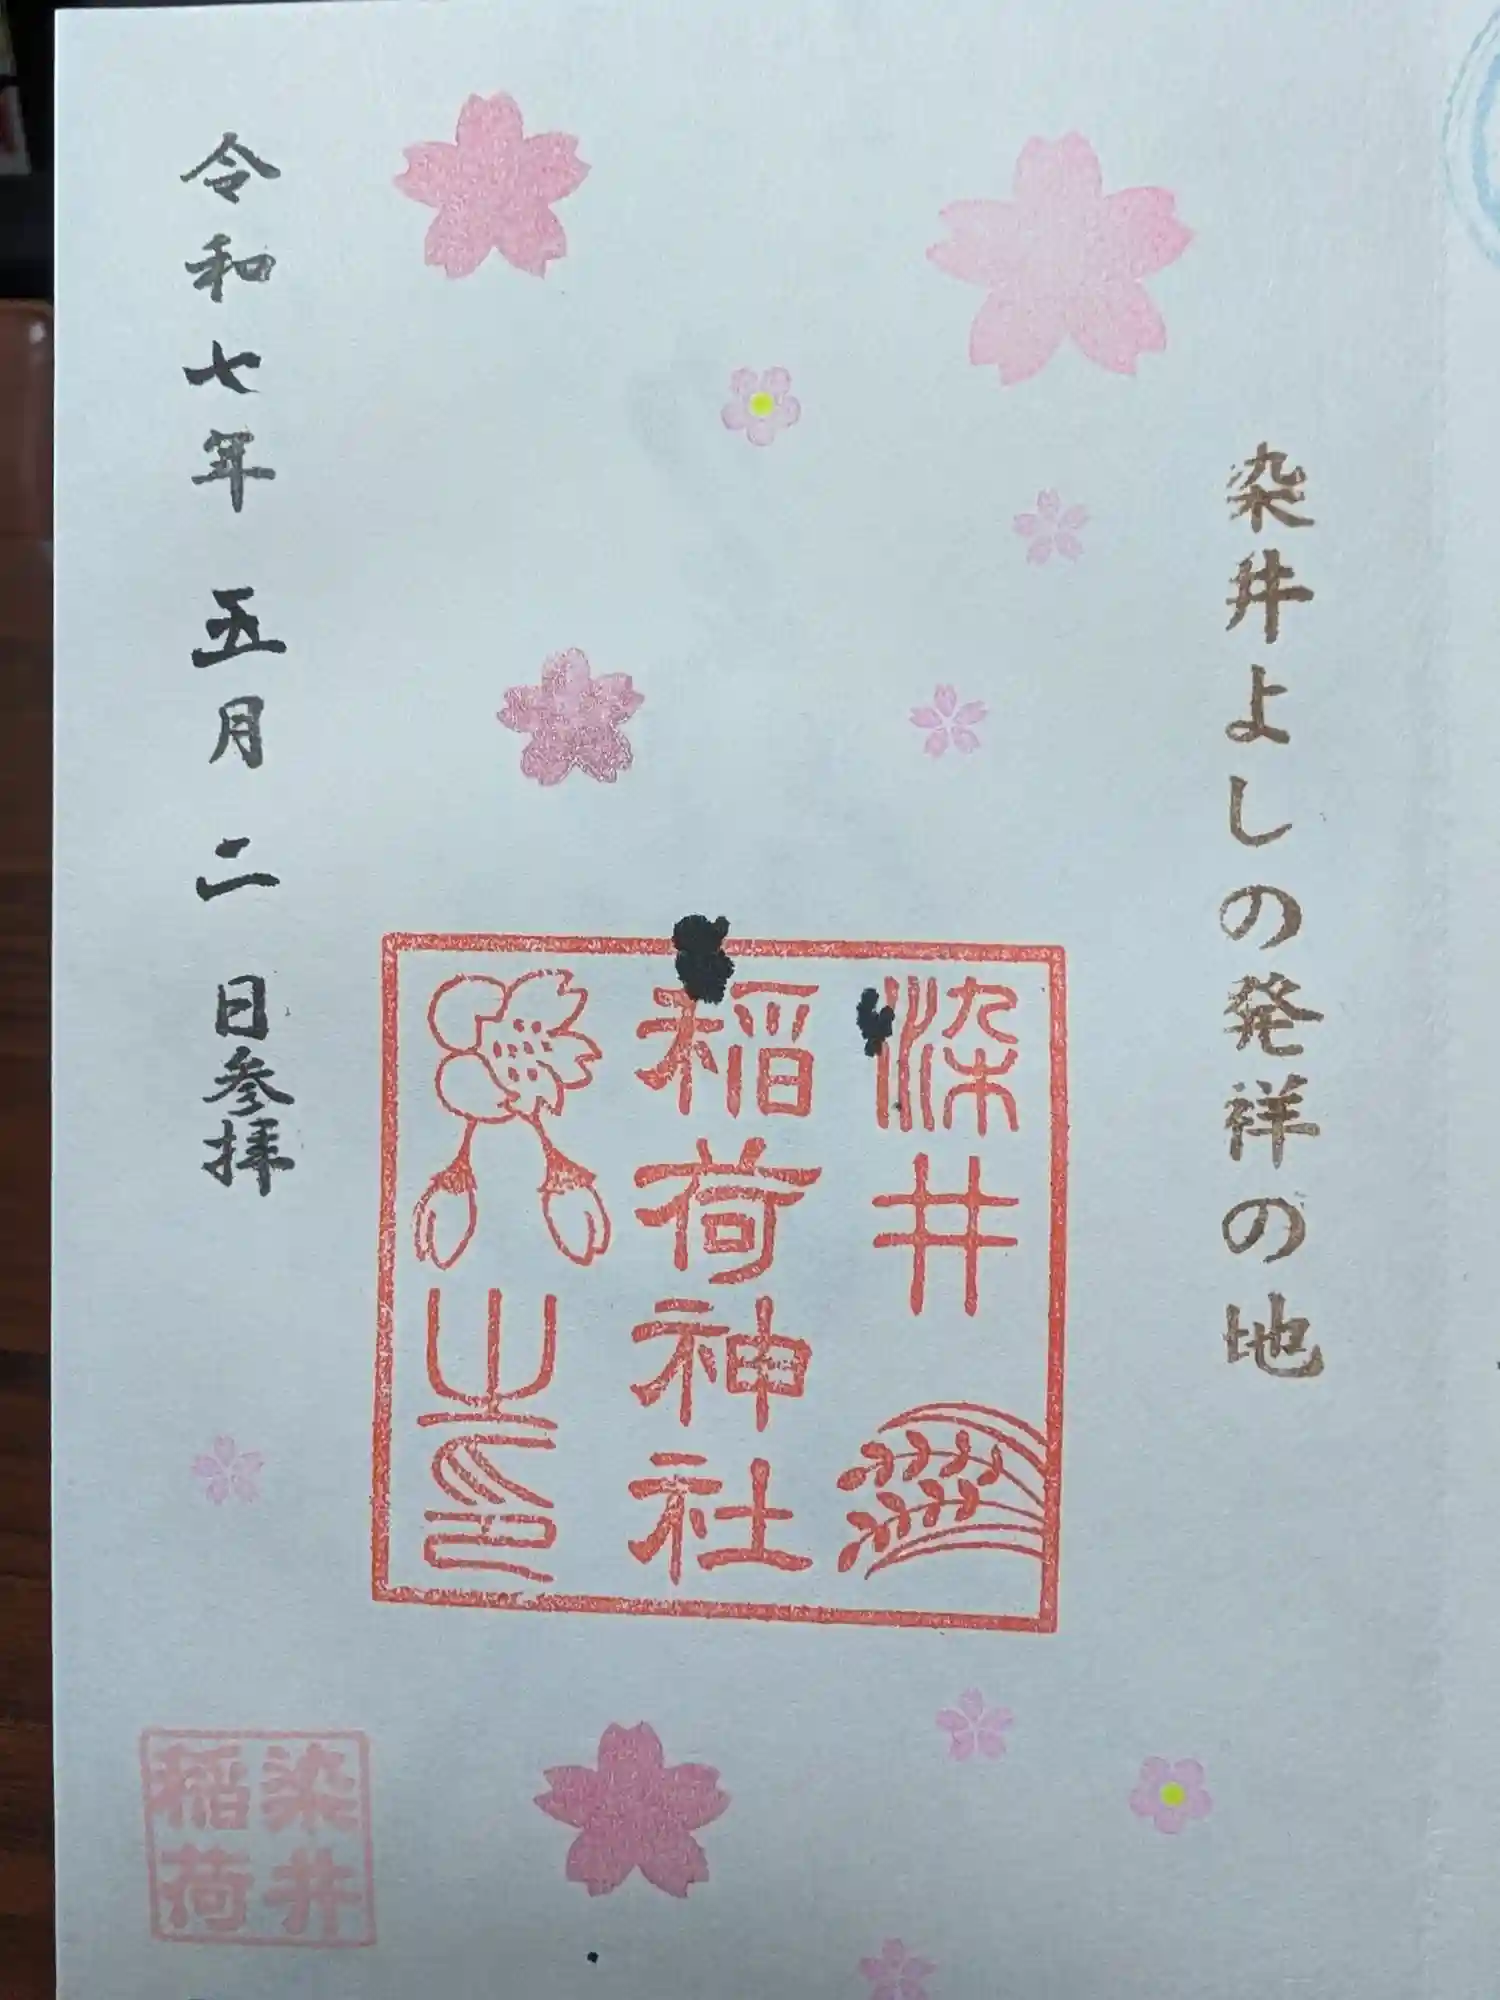 染井よしの発祥の地
染井
稲荷神社
之印
令和七年 五月 二 日参拝
染井
稲荷